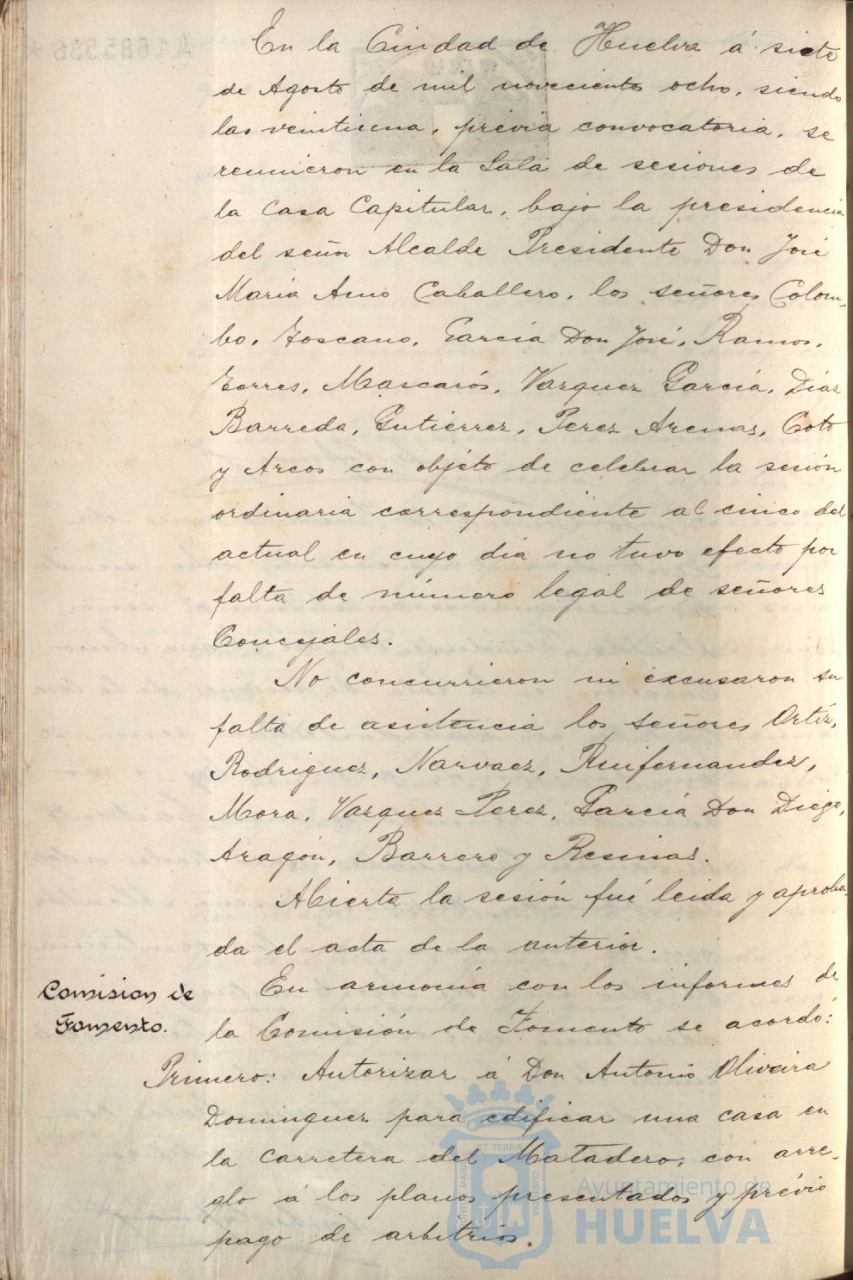 En la Ciudad de Huelva á siete
de Agosto de mil novecientos ocho, siendo
las veintiuna, prévia convocatoria, se
reunieron en la Sala de sesiones de
la Casa Capitular, bajo la presidencia
del señor Alcalde Presidente Don José
María Amo Caballero, los señores Colom-
bo, Toscano, García Don José, Ramos,
Torres, Mascarós, Vazquez García, Díaz
Barreda, Gutiérrez, Perez Arenas, Coto
y Arcos con objeto de celebrar la sesión
ordinaria correspondiente al cinco del
actual en cuyo dia no tuvo efecto por
falta de número legal de señores
Concejales.
No concurrieron ni excusaron su
falta de asistencia los señores Ortíz,
Rodriguez, Narvaez, Ruifernandez,
Mora, Vazquez Perez, García Don Diego,
Aragón, Barrero y Resinas.
Abierta la sesión fué leida y aproba-
da el acta de la anterior.
Comision de
Fomento.
En armonía con los informes de
la Comisión de Fomento se acordó:
Primero: Autorizar á Don Antonio Oliveira
Dominguez para edificar una casa en
la carretera del Matadero, con arre-
glo á los planos presentados y prévio
pago de arbitrios.
Ayuntamiento de
HUELVA